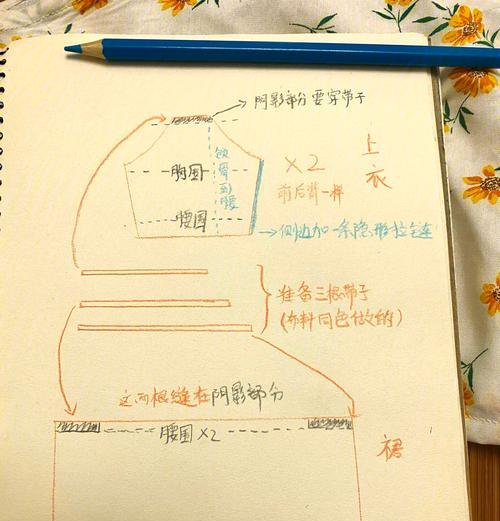 阴影部分要穿带子
上衣
胸围
锁骨到腰
×2
前后背一样
腰围
侧边加一条隐形拉链
准备三根带子
(布料同色做的)
这两根缝在阴影部分
腰围×2
裙